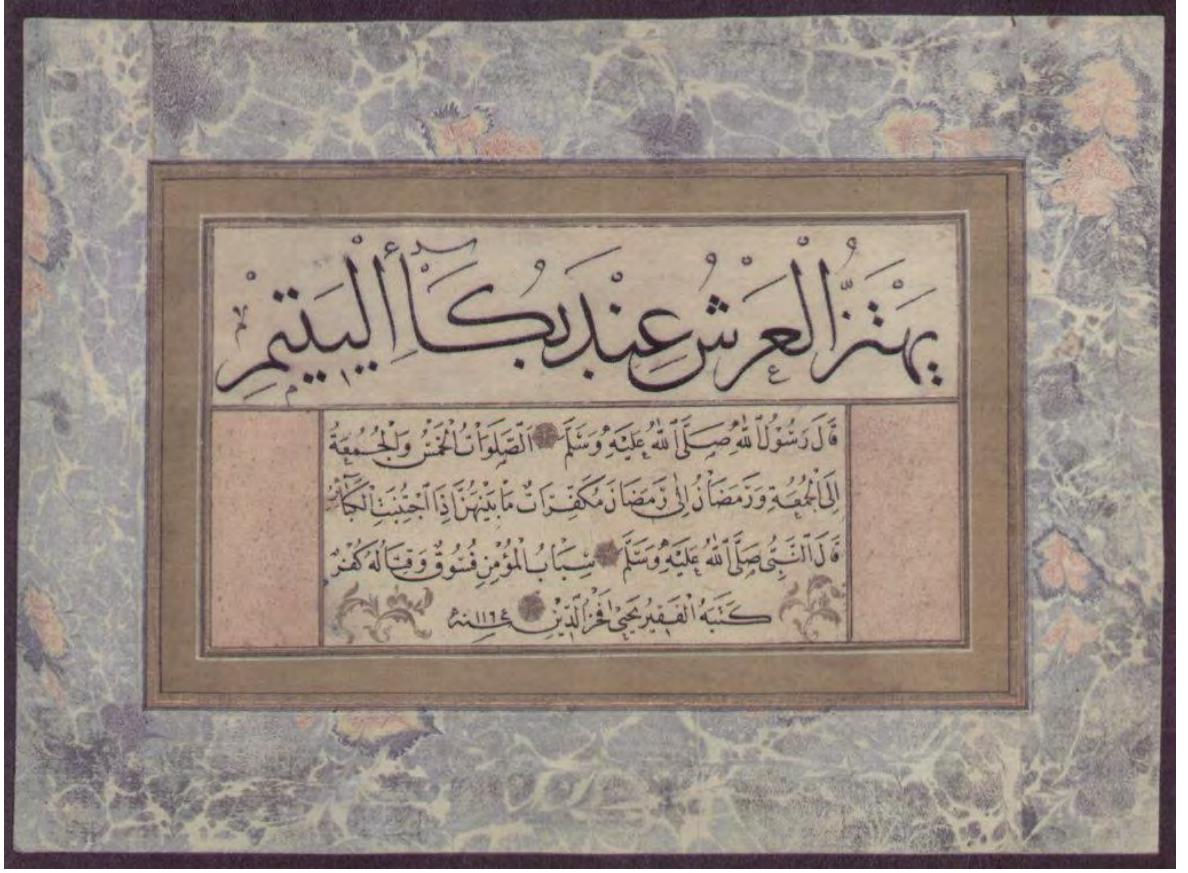 يَهْتَزُّ الْعَرْشُ عِنْدَ بُكَآءِ الْيَتِيمِ
قَالَ رَسُولُ اللهِ صَلَّى اللهُ عَلَيْهِ وَسَلَّمَ الصَّلَوَاتُ الْخَمْسُ وَالْجُمُعَةُ
اِلَى الْجُمُعَةِ وَرَمَضَانُ اِلَى رَمَضَانَ مُكَفِّرَاتٌ مَا بَيْنَهُنَّ اِذَا اجْتُنِبَتِ الْكَبَآئِرُ
قَالَ النَّبِيُّ صَلَّى اللهُ عَلَيْهِ وَسَلَّمَ سِبَابُ الْمُؤْمِنِ فُسُوقٌ وَقِتَالُهُ كُفْرٌ
كَتَبَهُ الْفَقِيرُ يَحْيَى فَخْرُ الدِّينِ سنة ١١٦٤